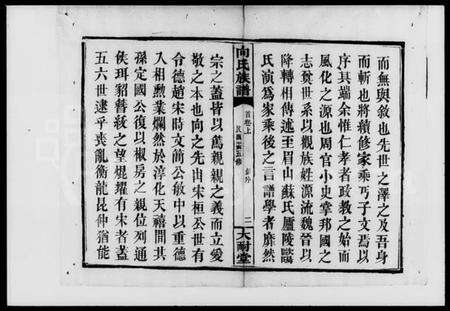 而無與敘也先世之澤之及吾身
而斬也將續修家乘丐子文焉以
序其端余惟仁孝者政教之始而
風化之源也周官小史掌邦國之
志奠世系以觀族姓源流魏晉以
降轉相傳述至眉山蘇氏廬陵歐
氏演爲家乘後之言譜學者靡然
向氏族譜
首卷上
民國
五修
二
大耐堂
宗之蓋皆以篤親親之義而立愛
敬之本也向之先由宋桓公世有
令德趙宋時文簡公敏中以重德
入相勲業爛然於淳化天禧間其
孫定國公復以椒房之親位列通
侯珥貂簪紱之望焜耀有宋者蓋
五六世逮乎喪亂衡龍昆仲猶能